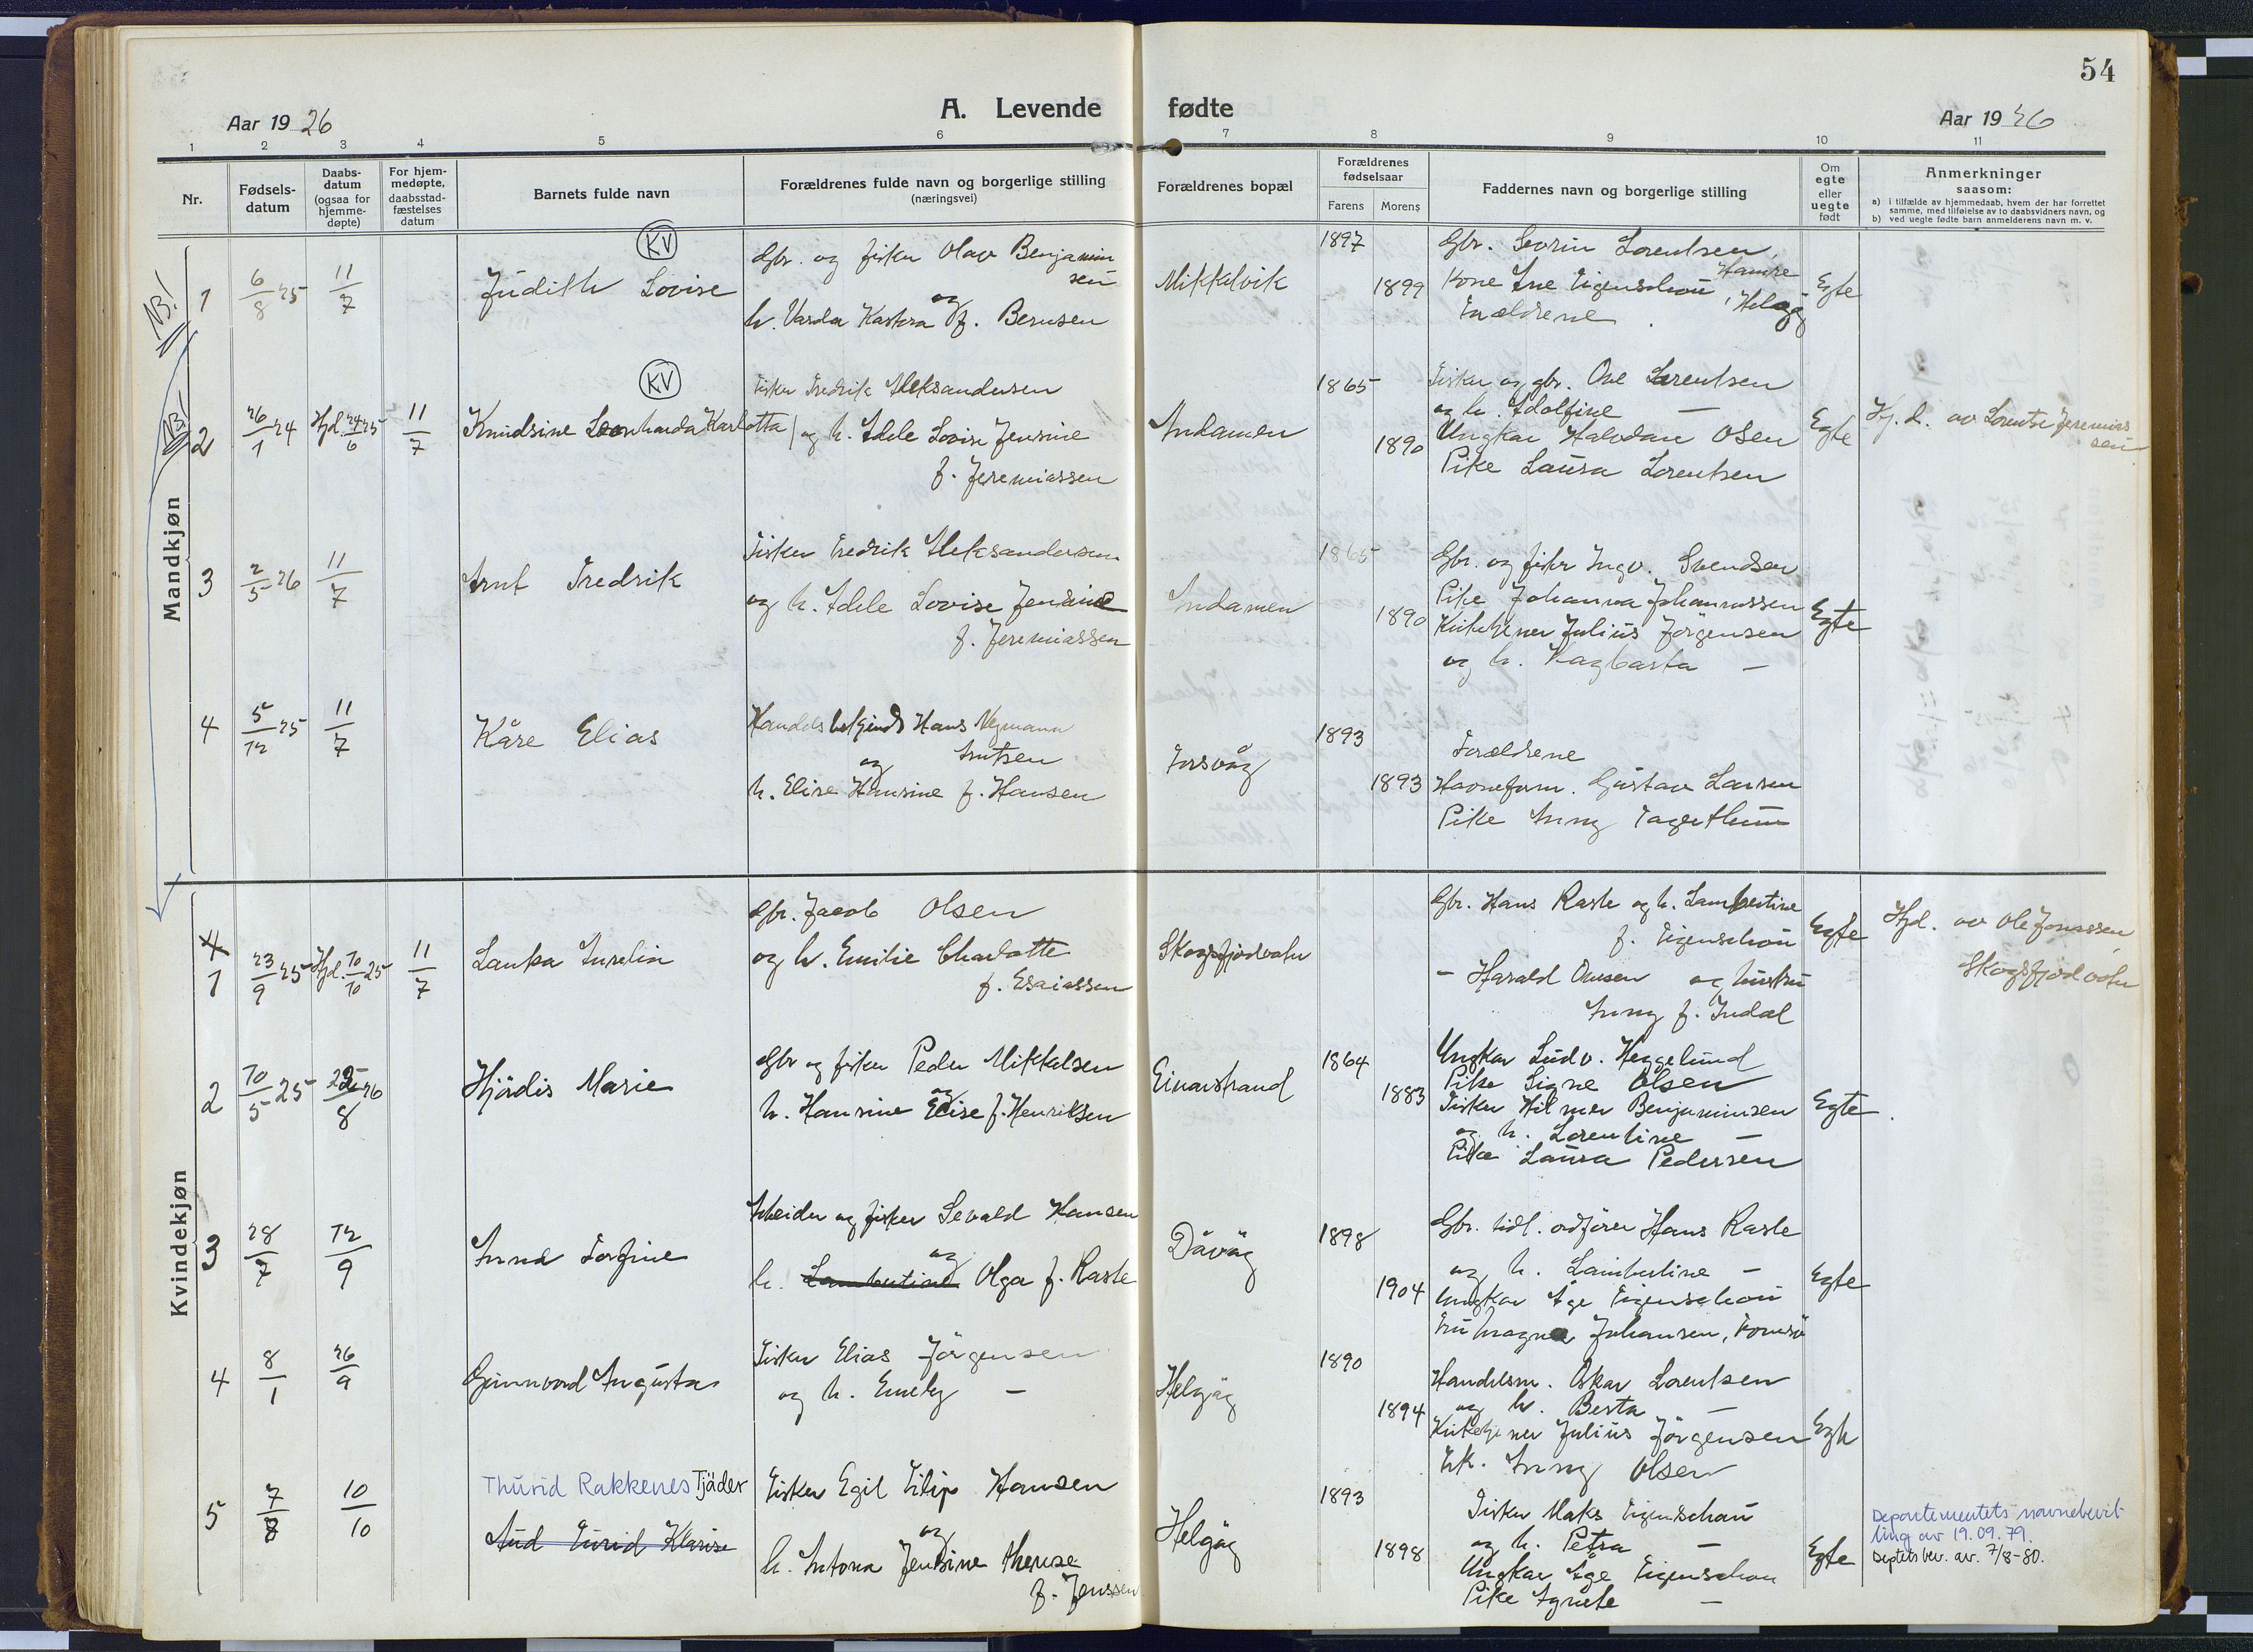 54
A. Levende fødte
Aar 1926
Aar 1926
1 2 3 4 5 6 7 8 9 10 11
Nr.
Fødsels-
datum
Daabs-
datum
(ogsaa for
hjemme-
døpte)
For hjem-
medøpte,
daabsstad-
fæstelses
datum
Barnets fulde navn
Forældrenes fulde navn og borgerlige stilling
(næringsvei)
Forældrenes bopæl
Forældrenes
fødselsaar
Farens Morens
Faddernes navn og borgerlige stilling
Om
egte
eller
uegte
født
Anmerkninger
saasom:
a) i tilfælde av hjemmedaab, hvem der har forrettet
samme, med tilføielse av to daabsvidners navn, og
b) ved uegte fødte barn anmelderens navn m. v.
Mandkjøn
NB!
1
6/8 25
11/7
KV
Judith Lovise
Gbr. og fisker Olav Benjamin
sen
og
h. Varda f. Bernsen
Mikkelvik
1897
1899
Gbr. Sevrin Lorentsen,
kone Ine Eigenschou, Hamre
Forældrene
Egte
NB!
2
26/1 24
Hjd. 24/6 25
11/7
KV
Knudsine Leonharda Karlotta
Fisker Fredrik Aleksandersen
og h. Adele Lovise Jensine
f. Jeremiassen
Andamen
1865
1890
Fisker og gbr. Ove Lorentsen
og h. Adolfine —
Ungkar Halvdan Olsen
Pike Laura Lorentsen
Egte
Hj. d. av Lorents Jeremias
sen
3
2/5 26
11/7
Arnt Fredrik
Fisker Fredrik Aleksandersen
og h. Adele Lovise Jensine
f. Jeremiassen
Andamen
1865
1890
Gbr. og fisker Ingv. Svendsen
Pike Johanna Johannessen
Kirketjener Julius Jörgensen
og h. Dagbarta —
Egte
4
5/12 25
11/7
Kåre Elias
Handelsbetjent Hans Nymann
Arntsen
og
h. Elise Hansine f. Hansen
Torsvåg
1893
1893
Forældrene
Havneform. Gustav Larsen
Pike Anny Fagerthun
Kvindekjøn
1
23/9 25
Hjd. 10/10 25
11/7
Laura Aurelia
Gbr. Jacob Olsen
og h. Emilie Charlotte
f. Esaiassen
Skogsfjordvatn
Gbr. Hans Raste og h. Lambertine
f. Eigenschou
— Harald Ovesen og hustru
Anny f. Indal
Egte
Hjd. av Ole Jonassen,
Skogsfjordvatn
2
10/5 25
22/8 26
Hjördis Marie
Gbr og fisker Peder Mikkalsen
og
h. Hansine Elise f. Henriksen
Einarstrand
1864
1883
Ungkar Ludv. Heggelund
Pike Signe Olsen
Fisker Hilmer Benjaminsen
og h. Lorentine —
Pike Laura Pedersen
Egte
3
28/7
12/9
Anna Torfine
Arbeider og fisker Sevald Hansen
og
h. Lambertine Olga f. Raste
Dåvåg
1898
1904
Gbr. tidl. ordfører Hans Raste
og h. Lambertine —
Ungkar Åge Eigenschou
Fru Magna Johansen, Tromsö
Egte
4
8/1
26/9
Gunnvord Augusta
Fisker Elias Jörgensen
og h. Emely —
Helgöy
1890
1894
Handelsm. Oskar Lorentsen
og h. Berta —
Kirketjener Julius Jörgensen
Frk. Anny Olsen
Egte
5
7/8
10/10
Thurid Rakkenes Tjäder
Aud Turid Klarise
Fisker Egil Filip Hansen
og
h. Antona Jensine Therese
f. Jenssen
Helgöy
1893
1898
Fisker Maks Eigenschou
og h. Petra —
Ungkar Åge Eigenschou
Pike Agnete —
Egte
Departementets navnebevil-
ling av 19.09.79.
Deptets bev. av. 7/8-80.